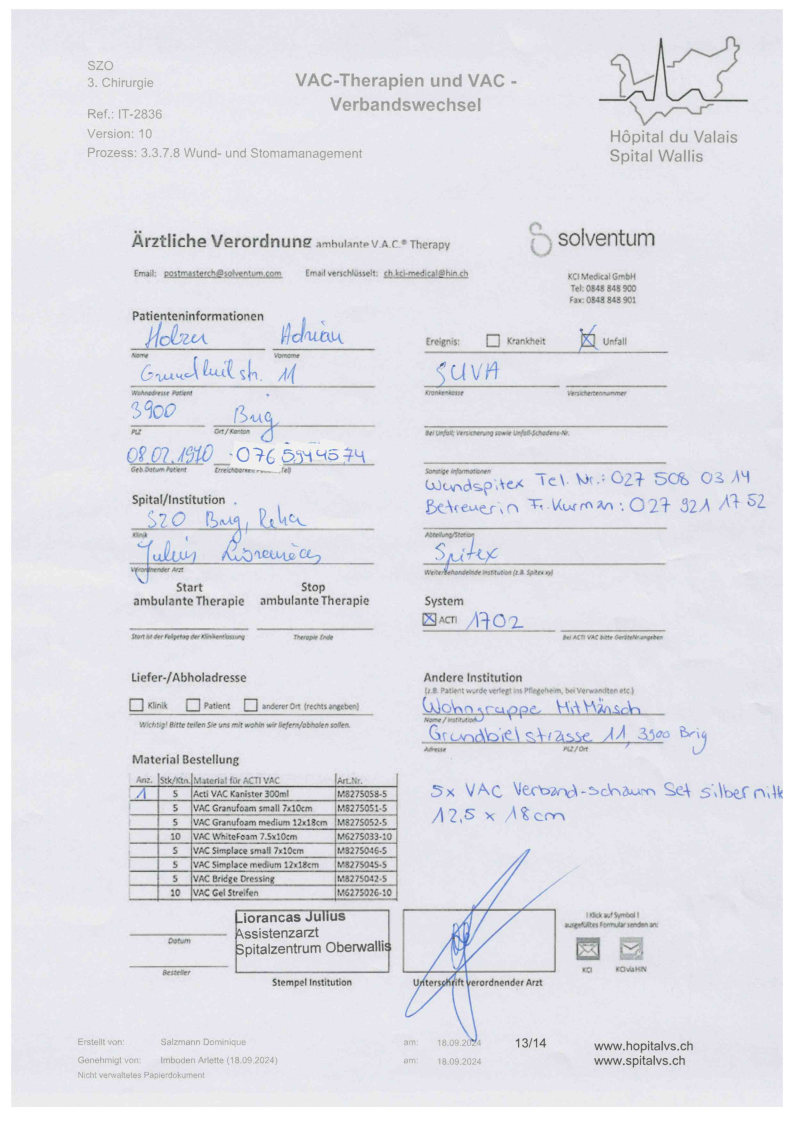 SZO
3. Chirurgie
VAC-Therapien und VAC -
Verbandswechsel
Ref.: IT-2836
Version: 10
Prozess: 3.3.7.8 Wund- und Stomamanagement
Hôpital du Valais
Spital Wallis
Ärztliche Verordnung ambulante V.A.C.® Therapy
solventum
Email: postmasterch@solventum.com Email verschlüsselt: ch.kci-medical@hin.ch
KCI Medical GmbH
Tel: 0848 848 900
Fax: 0848 848 901
Patienteninformationen
Holzer Adrian
Name Vorname
Ereignis: Krankheit Unfall
11
Wohnadresse Patient
SUVA
Krankenkasse Versichertennummer
3900 Brig
PLZ Ort / Kanton
Bei Unfall; Versicherung sowie Unfall-Schadens-Nr.
08.02.1970 076 594 45 74
Geb.Datum Patient Tel)
Sonstige Informationen
Wundspitex Tel. Nr.: 027 508 03 14
Betreuerin Fr. Kurman: 027 921 17 52
Spital/Institution
SZO Brig, Reha
Klinik
Abteilung/Station
Julius
Verordnender Arzt
Spitex
Weiterbehandelnde Institution (z.B. Spitex xy)
Start
ambulante Therapie
Stop
ambulante Therapie
System
ACTI 1702
Start ist der Folgetag der Klinikentlassung Therapie Ende
Bei ACTI VAC bitte GeräteNr.angeben
Liefer-/Abholadresse
Klinik Patient anderer Ort (rechts angeben)
Wichtig! Bitte teilen Sie uns mit wohin wir liefern/abholen sollen.
Andere Institution
(z.B. Patient wurde verlegt ins Pflegeheim, bei Verwandten etc.)
Wohngruppe MitMänsch
Name / Institution
Grundbielstrasse 11, 3900 Brig
Adresse PLZ / Ort
Material Bestellung
Anz. Stk/Ktn. Material für ACTI VAC Art.Nr.
1 5 Acti VAC Kanister 300ml M8275058-5
5 VAC Granufoam small 7x10cm M8275051-5
5 VAC Granufoam medium 12x18cm M8275052-5
10 VAC WhiteFoam 7.5x10cm M6275033-10
5 VAC Simplace small 7x10cm M8275046-5
5 VAC Simplace medium 12x18cm M8275045-5
5 VAC Bridge Dressing M8275042-5
10 VAC Gel Streifen M6275026-10
5x VAC Verband-schaum Set silber
12,5 x 18cm
Datum
Besteller
Liorancas Julius
Assistenzarzt
Spitalzentrum Oberwallis
Stempel Institution
Unterschrift verordnender Arzt
! Klick auf Symbol !
ausgefülltes Formular senden an:
KCI KCIviaHIN
Erstellt von: Salzmann Dominique am: 18.09.2024
Genehmigt von: Imboden Arlette (18.09.2024) am: 18.09.2024
Nicht verwaltetes Papierdokument
13/14
www.hopitalvs.ch
www.spitalvs.ch